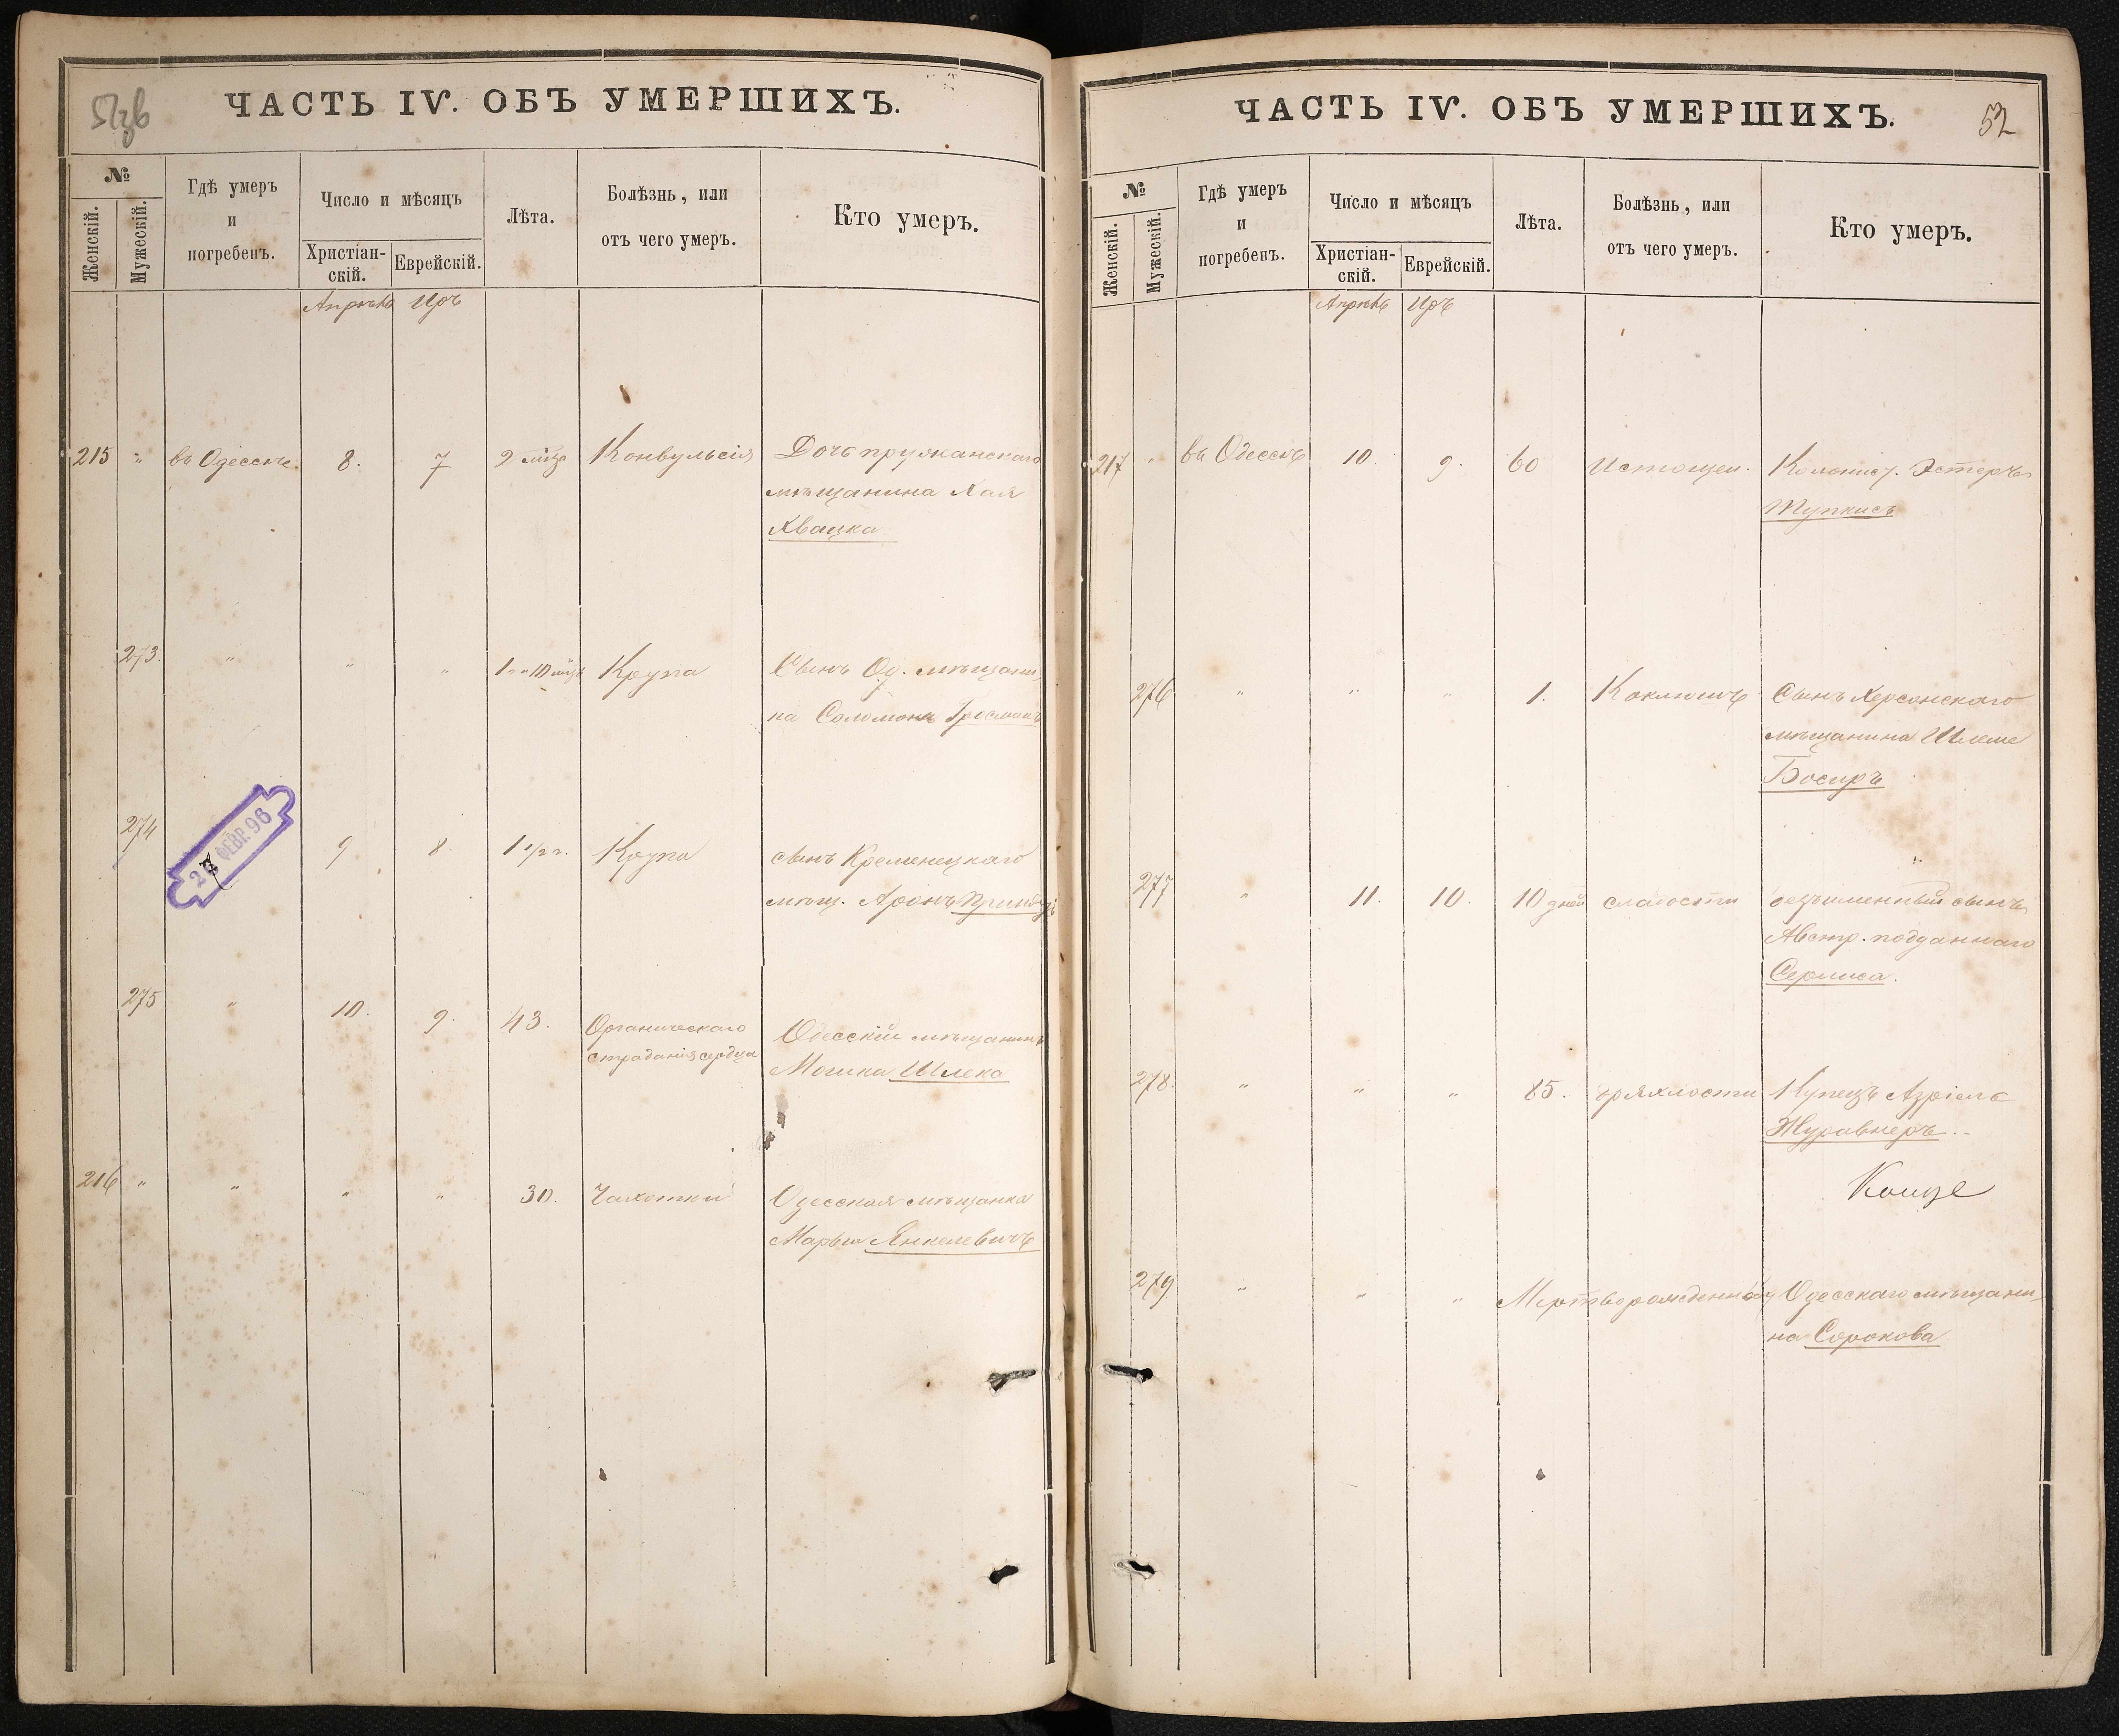 51зв
ЧАСТЬ IV. ОБЪ УМЕРШИХЪ.
№
Женскій.
Мужескій.
Гдѣ умеръ
и
погребенъ.
Число и мѣсяцъ
Христіан-
скій.
Еврейскій.
Лѣта.
Болѣзнь, или
отъ чего умеръ.
Кто умеръ.
Апрѣль Иръ
215 " въ Одессѣ. 8. 7 2 мѣц Конвульсія Дочь пружанскаго
мѣщанина Хая
Хвацка
273. " " " 1 г. 10 мѣц Крупа Сынъ Од. мѣщани,
на Соломонъ
274 9 8. 1 1/2 г. Крупа сынъ Кременецкаго
мѣщ. Аронъ
26 ФЕВР. 96
275 " 10. 9. 43. Органическаго
страданія сердца
Одесскій мѣщанинъ
Мошка Шлека
216 " " " " 30. Чахотки Одесская мѣщанка
Марьи Янкелевичъ
ЧАСТЬ IV. ОБЪ УМЕРШИХЪ.
52
№
Женскій.
Мужескій.
Гдѣ умеръ
и
погребенъ.
Число и мѣсяцъ
Христіан-
скій.
Еврейскій.
Лѣта.
Болѣзнь, или
отъ чего умеръ.
Кто умеръ.
Апрѣль Иръ
217 " въ Одессѣ 10 9. 60 Истощен. Колонист. Эстеръ
276 " " " 1. Коклюшъ Сынъ Херсонскаго
мѣщанина Шлеме
Босиръ
277 " 11. 10. 10 дней слабости безъименный сынъ
Австр. подданнаго
278. " " " 85. дряхлости Купецъ Азріель
Журавнеръ
279 " " " Мертворожденный Одесскаго мѣщани,
на Сорокова